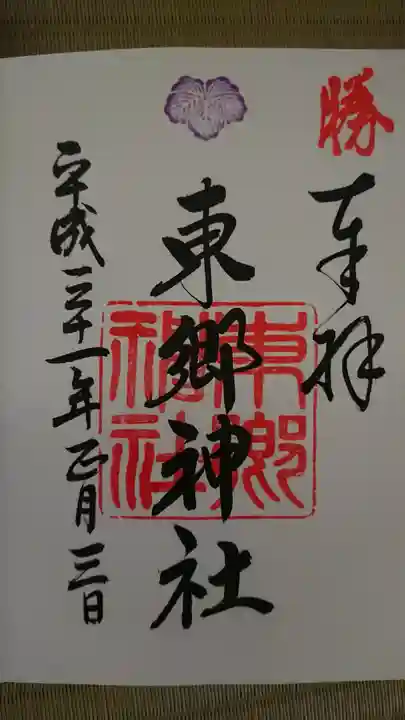 勝
奉拝
東郷神社
東郷神社
平成三十一年正月三日